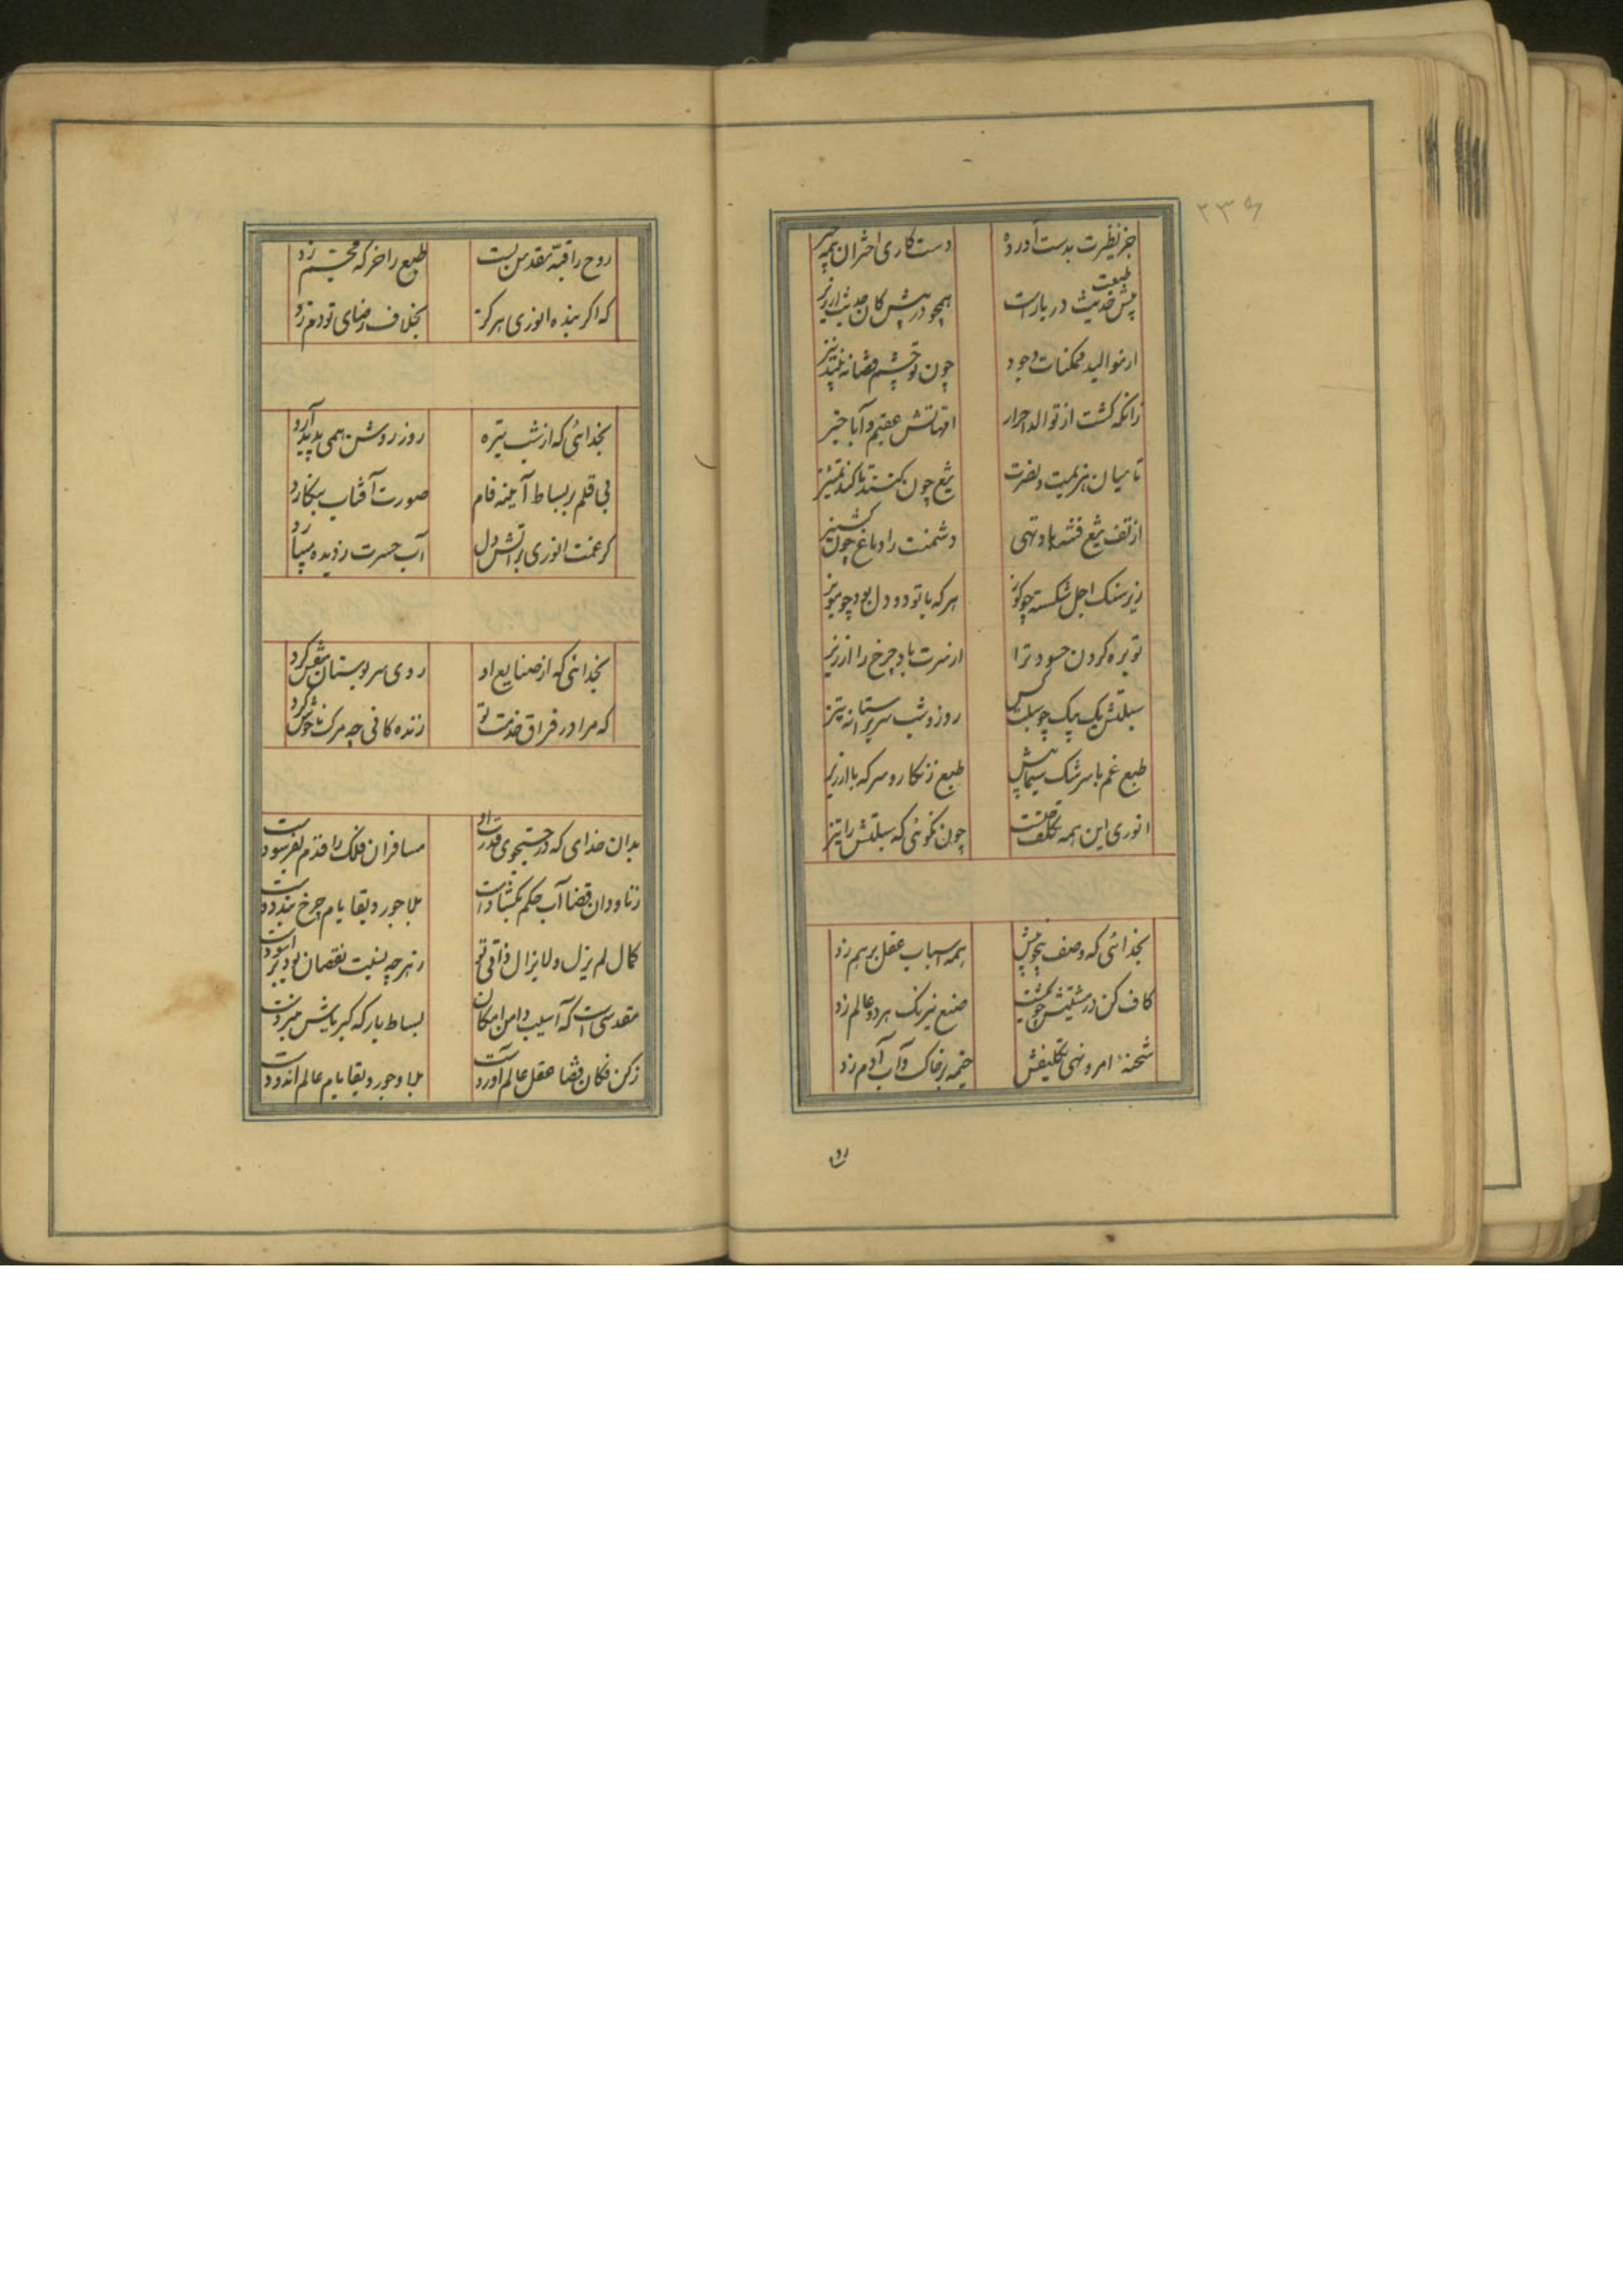 ۲۳۶
جز نظیرت بدست آورده دست کاری اختران همه چیز
پیش طبعت حدیث دربارت همچو در پیش کان حدیث ارزیز
از موالید ممکنات وجود چون تو چشم قضا ندید نیز
زانکه گشت از توالد احرار امهاتش عقیم و آبا حیز
تا میان هزیمت و نصرت تیغ چون کنند تا کند تمییز
از تف تیغ فتنه باد تهی دشمنت را دماغ چون کشنیز
زیر سنک اجل شکسته چو کوز هر که با تو دو دل بود چو مویز
توبره کردن حسود ترا
سبلتش یک بیک چو سبلت روز و شب
طبع غم با سرشک سیماش طبع زنکار و سرکه با ارزیز
انوری این همه تکلف چیست چون نکوئی که سبلتش را تیز
بخدائی که وصف بیچونش همه اسباب عقل برهم زد
کاف کن در مشیتش چو بگشت صنع نیرنک هر دو عالم زد
شحنهٔ امر و نهی تکلیفش خیمه بر خاک و آب آدم زد
روح
روح را قبهٔ مقدس بست طبع را خرکه مجسم زد
که اکر بنده انوری هرکز بخلاف رضای تو دم زد
بخدائی که از شب تیره روز روشن همی پدید آرد
بی قلم بر بساط آینه فام صورت آفتاب بنکارد
کز غمت انوری بر آتش دل آب حسرت ز دیده میبارد
بخدائی که از صنایع او روی هر بوستان منقش کرد
که مرا در فراق خدمت تو زنده کانی چو مرک ناخوش کرد
بدان خدای که در جستجوی قدرت او مسافران فلک را قدم بفرسودست
ز ناودان قضا آب حکم بگشادست بلاجورد بقا بام چرخ
کمال لم یزل و لا یزال ذاتی تو ز هر چه نسبت نقصان بود بر آسودست
مقدسی است که آسیب دامن امکان بساط بارکه کبریاش
ز کن فکان قضا عقل عالم آوردست بلاجورد بقا بام عالم اندودست